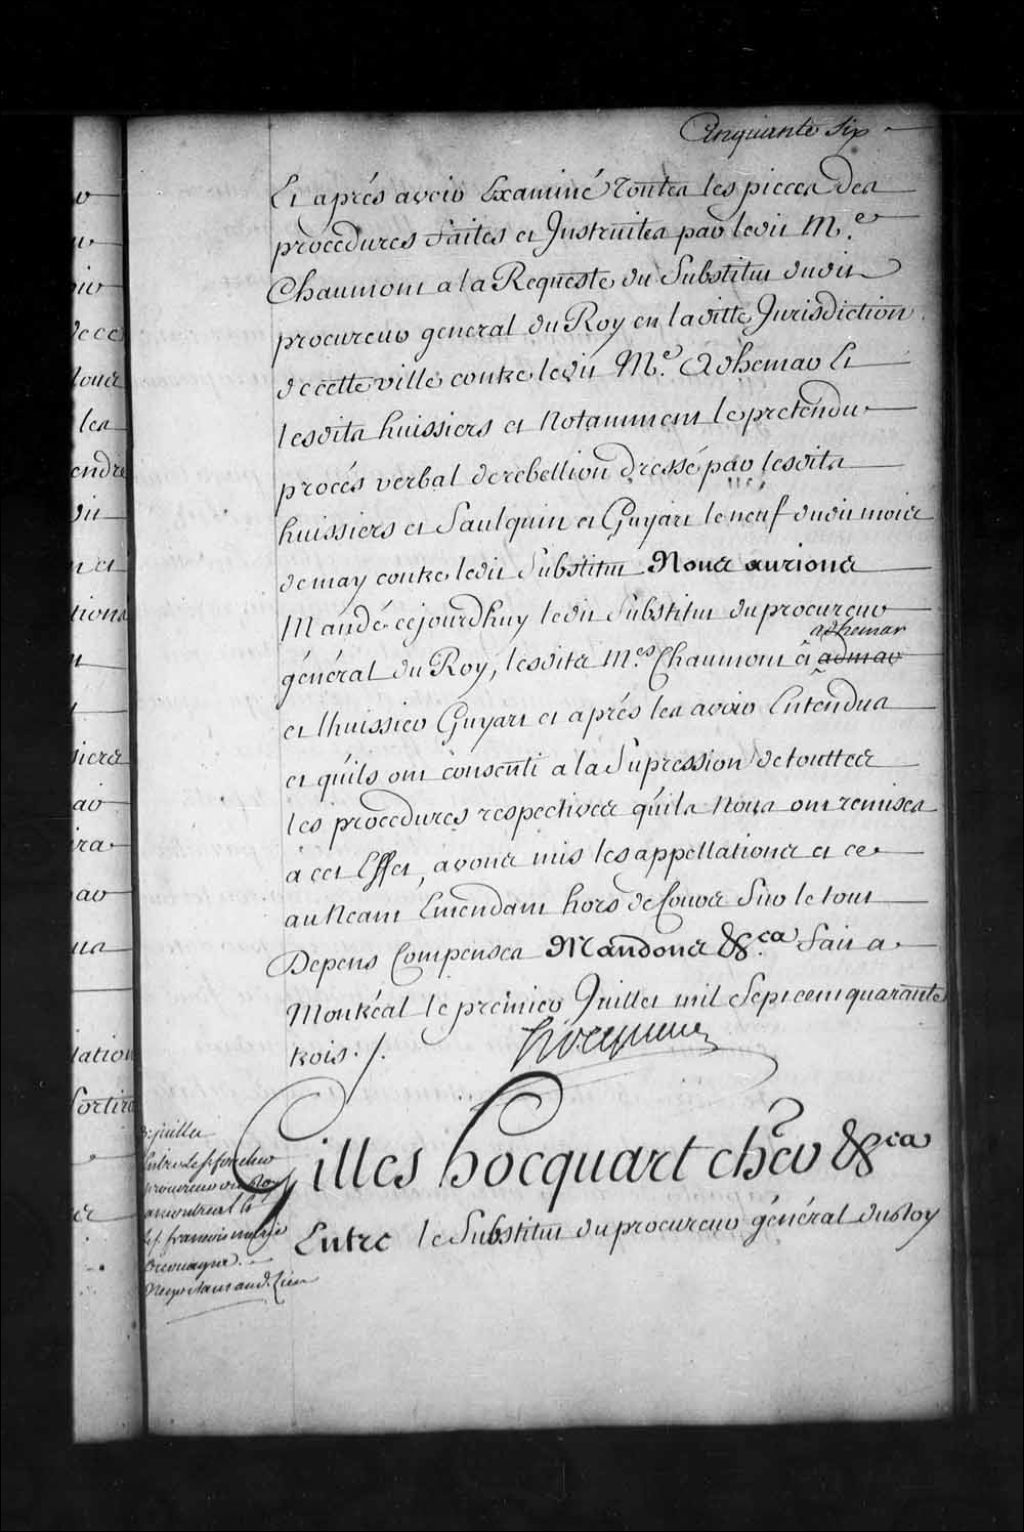 Cinquante Six
Et aprés avoir Examiné toutes les pieces des
procedures faites et Instruites par ledit M.e
Chaumont a la Requeste du Substitut dudit
procureur general du Roy en laditte Jurisdiction
de cette ville contre ledit M.e Adhemar Et
lesdits huissiers et Notamment le pretendu
procés verbal de rebellion dressé par lesdits
huissiers et Saulquin et Guyart le neuf dudit mois
de may contre ledit Substitut Nous aurions
Mandé cejourdhuy ledit Substitut du procureur
adhemar
général du Roy, lesdits M.es Chaumont et admar
et lhuissier Guyart et aprés les avoir Entendus
et quils ont consenti a la Supression de touttes
les procedures respectives quils Nous ont remises
a cet Effet, avons mis les appellations et ce
au Neant Emendant hors de Cour Sur le tout
Depens Compensés Mandons &.ca fait a
Montréal le premier Juillet mil Sept cent quarante
trois ./.
hocquart
Gilles hocquart cher &ca
Entre le Substitut du procureur général du Roy
juillet
Entre le sr foucher
procureur du Roy
a montreal
le sr francois
Negociant aud. Lieu
v
deces
les
endre
dit
n et
tions
t
siers
av
ra
av
us
lation
Sortira